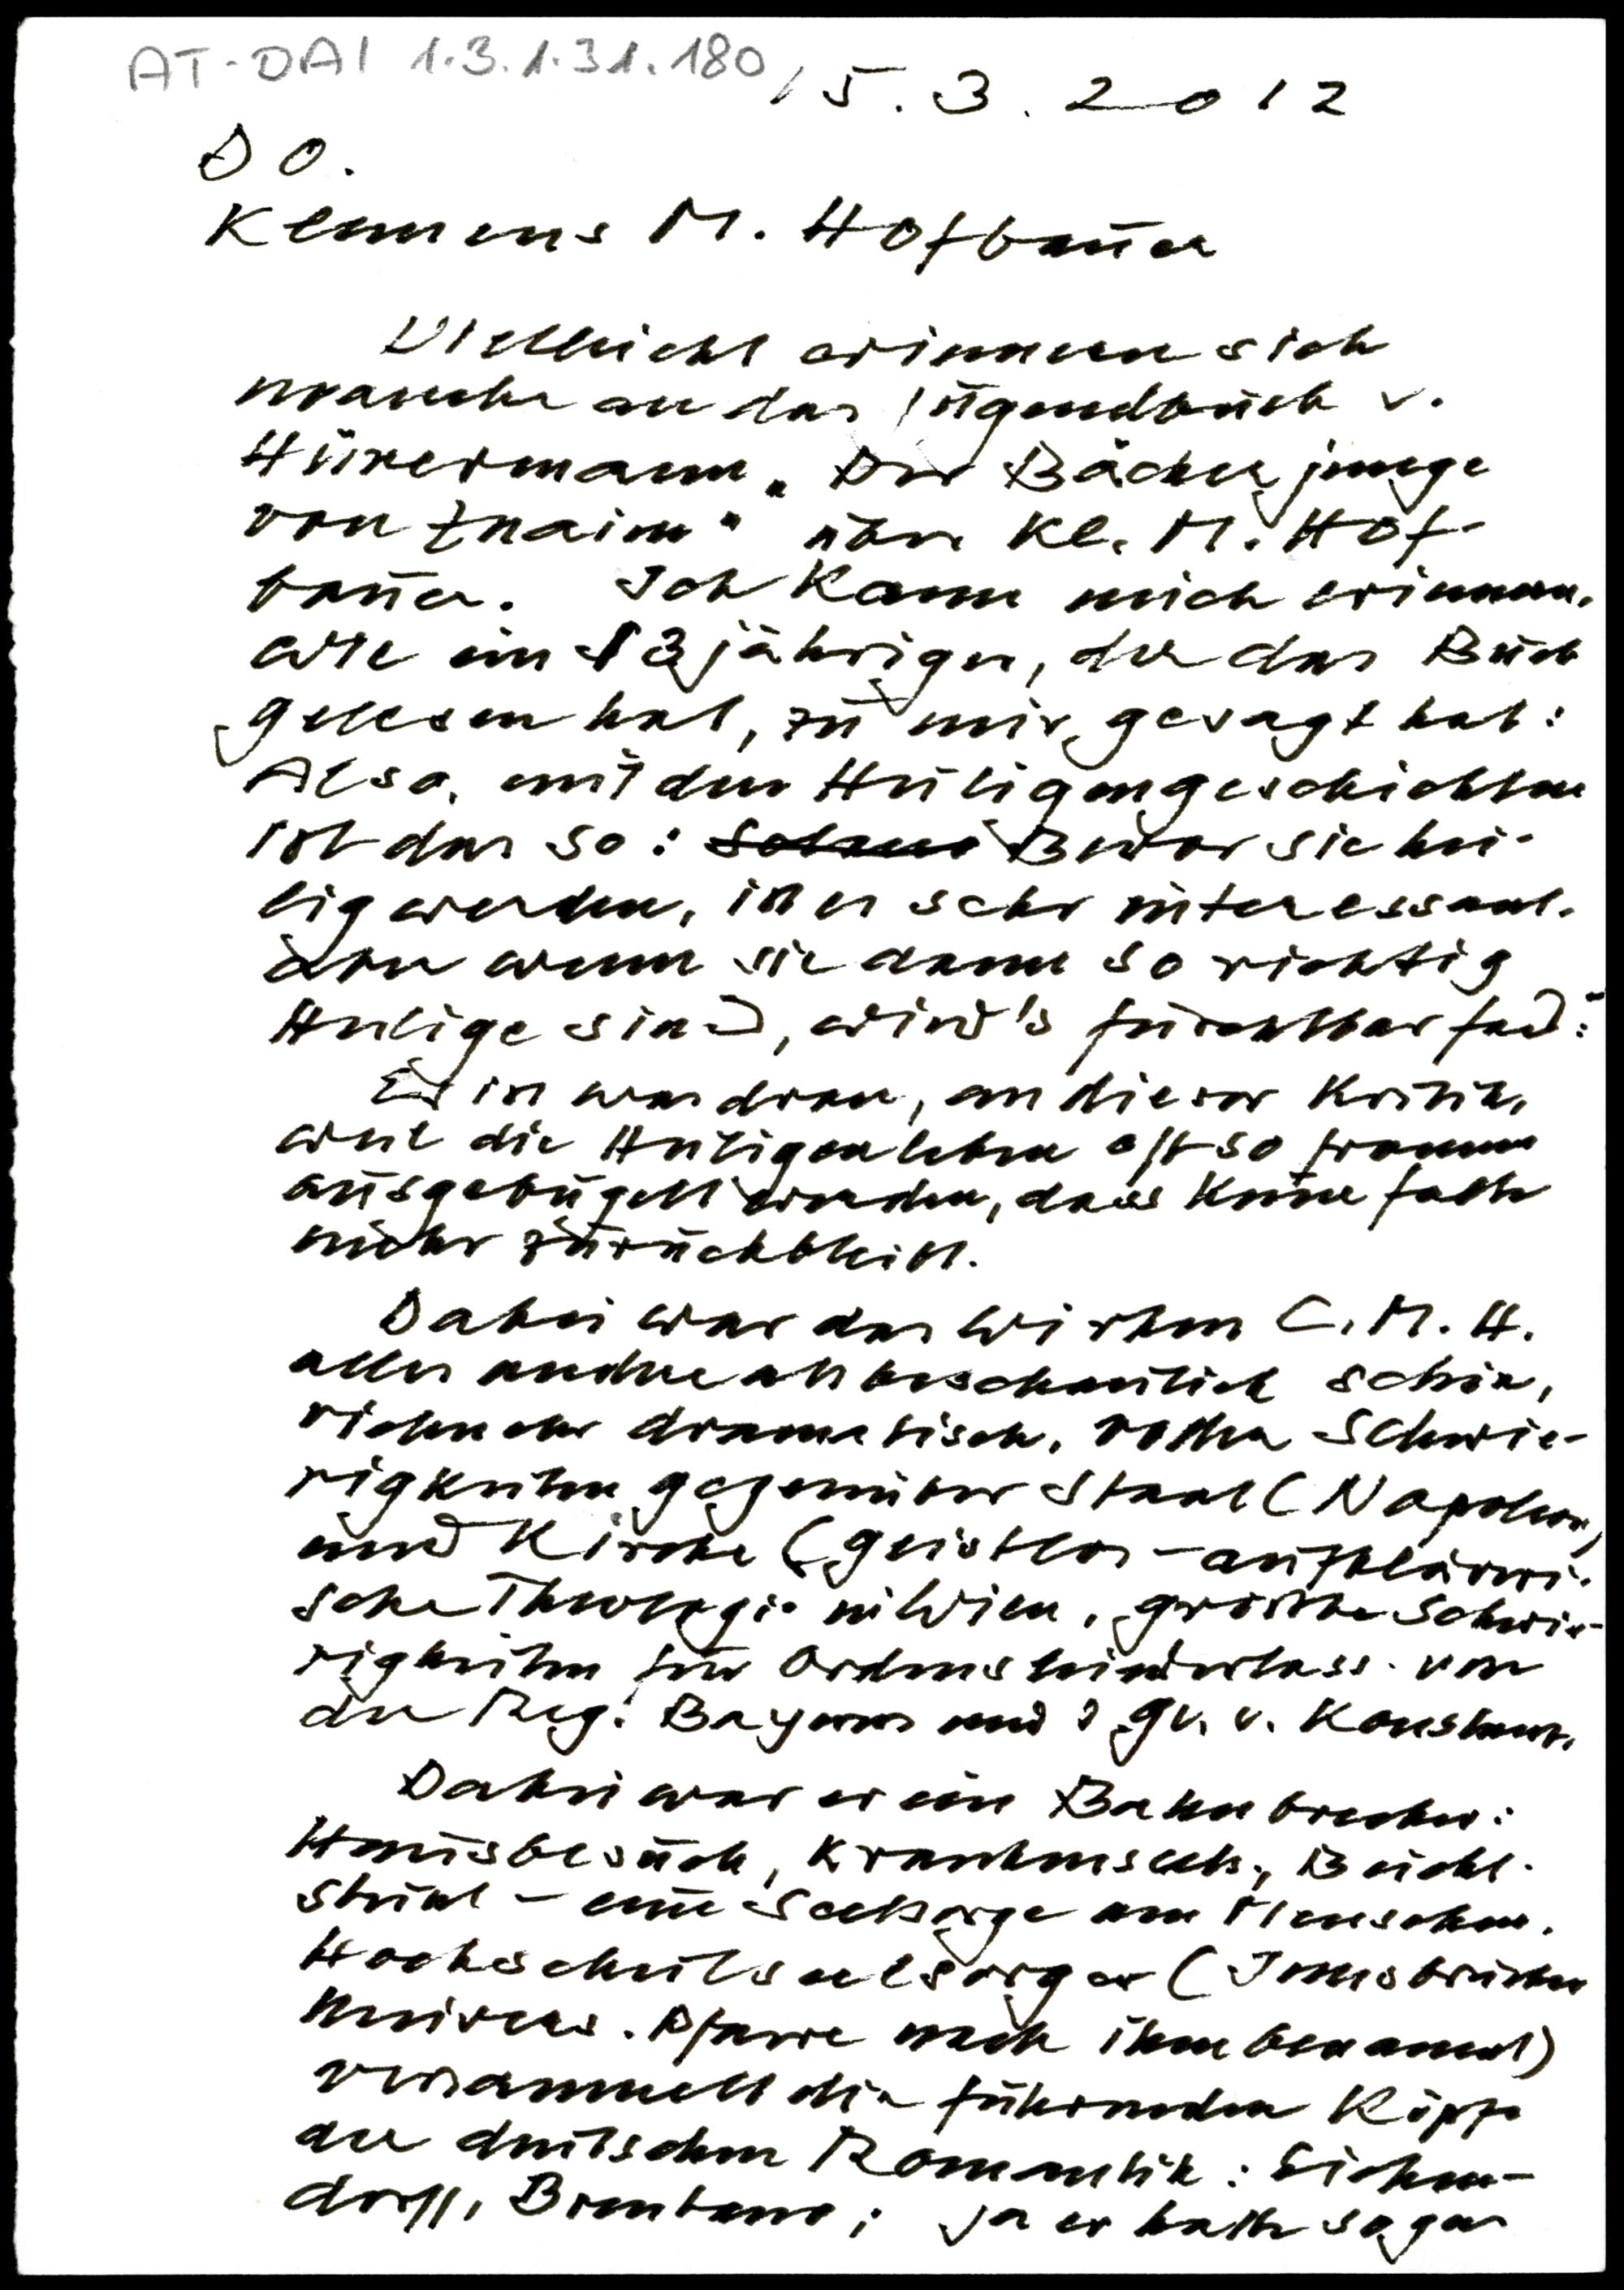 AT-DAI 1.3.1.31.180
15.3.2012
DO.
Klemens M. Hofbauer
Vielleicht erinnern sich
manche an das Jugendbuch v.
Hünermann „Der Bäckerjunge
von Znaim" über Kl. M. Hof-
bauer. Ich kann mich erinnern,
wie ein 13jähriger, der das Buch
gelesen hat, zu mir gesagt hat:
Also, mit den Heiligengeschichten
ist das so: Bevor sie hei-
lig werden, ist es sehr interessant.
Aber wenn sie dann so richtig
Heilige sind, wird's furchtbar fad:
Es ist was dran, an dieser Kritik,
weil die Heiligenleben oft so fromm
ausgebügelt werden, dass keine Falte
mehr zurückbleibt.
Dabei war das Wirken C. M. H.
alles andere als beschaulich schön,
vielmehr dramatisch, voller Schwie-
rigkeiten gegenüber Staat (Napoleon)
und Kirche (geistlos-aufkläreri-
sche Theologie in Wien, größte Schwie-
rigkeiten für Ordensniederlass. von
der Reg. Bayerns und d. gv. v. Konstanz.
Dabei war er ein Bahnbrecher:
Hausbesuch, Krankenseels., Beicht-
stuhl – eine Seelsorge am Menschen.
Hochschulseelsorger (Innsbrucker
Univers. Pfarre nach ihm benannt)
versammelt die führenden Köpfe
der deutschen Romantik: Eichen-
dorff, Brentano; ja er hatte sogar